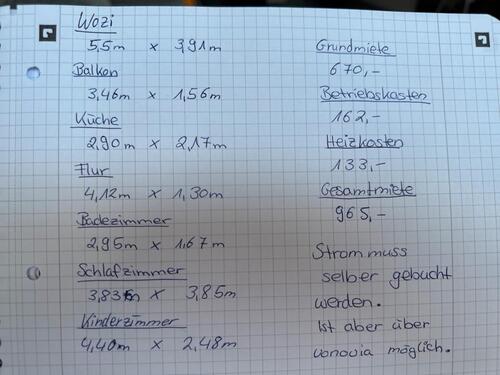 Wozi
5,5m x 3,91m
Balkon
3,46m x 1,56m
Küche
2,90m x 2,17m
Flur
4,12m x 1,30m
Badezimmer
2,95m x 1,67m
Schlafzimmer
3,83m x 3,85m
Kinderzimmer
4,40m x 2,48m
Grundmiete
670,-
Betriebskosten
162,-
Heizkosten
133,-
Gesamtmiete
965,-
Strom muss
selber gebucht
werden.
Ist aber über
vonovia möglich.